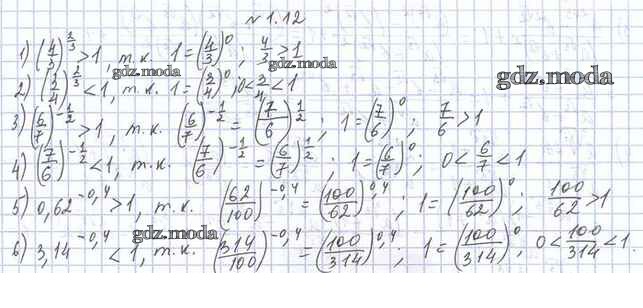 № 1.12
1) (4/3)^(2/3) > 1, т.к. 1 = (4/3)^0; 4/3 > 1
gdz.moda
gdz.moda
gdz.moda
2) (3/4)^(2/3) < 1, т.к. 1 = (3/4)^0, 0 < 3/4 < 1
3) (6/7)^(-1/2) > 1, т.к. (6/7)^(-1/2) = (7/6)^(1/2); 1 = (7/6)^0; 7/6 > 1
4) (7/6)^(-1/2) < 1, т.к. (7/6)^(-1/2) = (6/7)^(1/2); 1 = (6/7)^0; 0 < 6/7 < 1
5) 0,62^(-0,4) > 1, т.к. (62/100)^(-0,4) = (100/62)^(0,4); 1 = (100/62)^0; 100/62 > 1
gdz.moda
6) 3,14^(-0,4) < 1, т.к. (314/100)^(-0,4) = (100/314)^(0,4); 1 = (100/314)^0, 0 < 100/314 < 1.